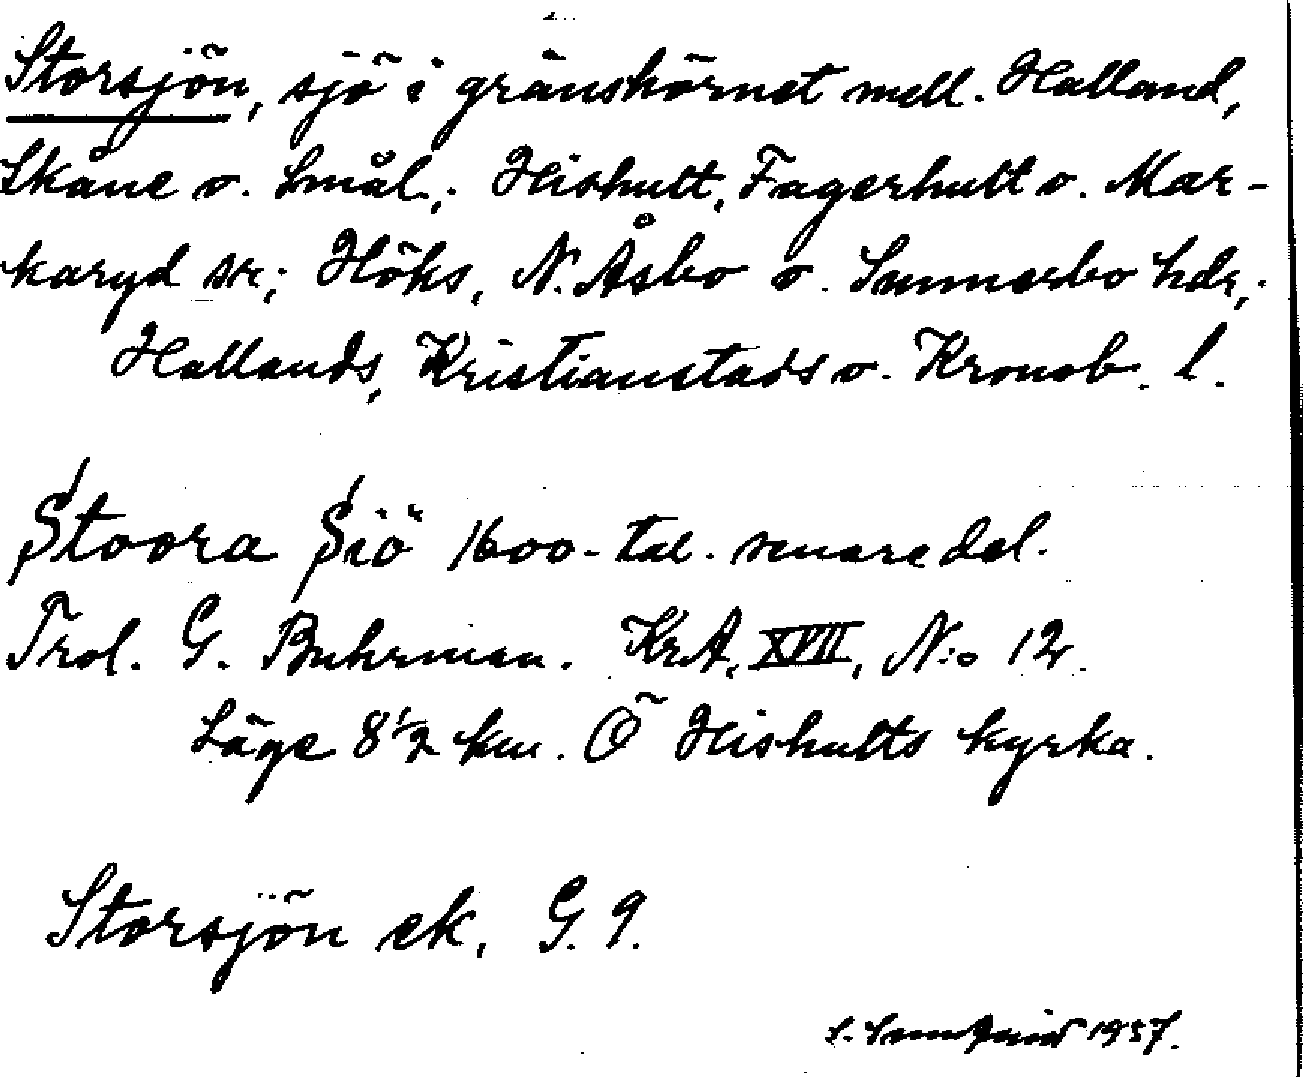 Storsjön, sjö i gränshörnet mell. Halland,
Skåne o. Smål.; Hishult, Fagerhult o. Mar-
karyd sr; Höks, N. Åsbo o. Sunnerbo hdr,;
Hallands, Kristianstads o. Kronob. l.
Stoora Siö 1600-tal. senare del.
Trol. G. Buhrman. KrA, XVII, N:o 12.
Läge 8 1/2 km. Ö Hishults kyrka.
Storsjön ek, G. 9.
S. 1957.